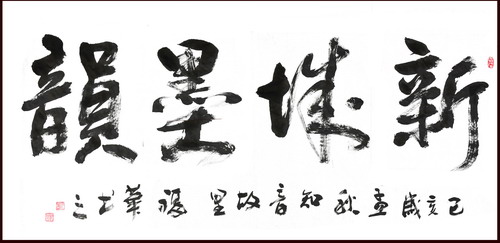 新城墨韻
己亥歲孟秋知音故里楊華書之